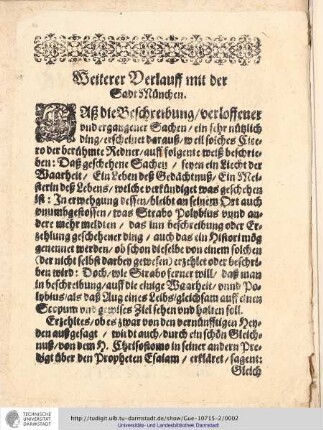 Weiterer Verlauff mit der
Sadt München.
DAß die Beschreibung / verloffener
vnd ergangener Sachen / ein sehr nützlich
ding / erscheinet darauß / weil solches Cice-
ro der berühmte Redner / auff folgente weiß beschrie-
ben: Daß geschehene Sachen / seyen ein Liecht der
Waarheit / Ein Leben deß Gedächtnuß / Ein Mei-
sterin deß Lebens / welche verkündiget was geschehen
ist: In erwehgung dessen / bleibt an seinem Ort auch
vnumbgestossen / was Strabo Polybius vnnd an-
dere mehr melden / das ein beschreibung oder Er-
zehlung geschehener ding / auch das ein Histori mög
genennet werden / ob schon dieselbe von einem solchen
der nicht selbst darbey gewesen / erzehlet oder beschri-
ben wird: Doch / wie Strabo ferner will / daß man
in beschreibung / auff die einige Waarheit / vnnd Po-
lybius / als daß Aug eines Leibs / gleichsam auff einen
Scopum vnd gewises Ziel sehen vnd halten soll.
Erzehltes / obes zwar von den vernünfftigen Hey-
den außgesagt / wirdt auch / durch ein schön Gleich-
nuß / von dem H. Chrisostomo in seiner andern Pre-
digt über den Propheten Esaiam / erkläret / sagent:
Gleich
TECHNISCHE
UNIVERSITÄT
DARMSTADT
http://tudigit.ulb.tu-darmstadt.de/show/Gue-10715-2/0002
Universitäts- und Landesbibliothek Darmstadt